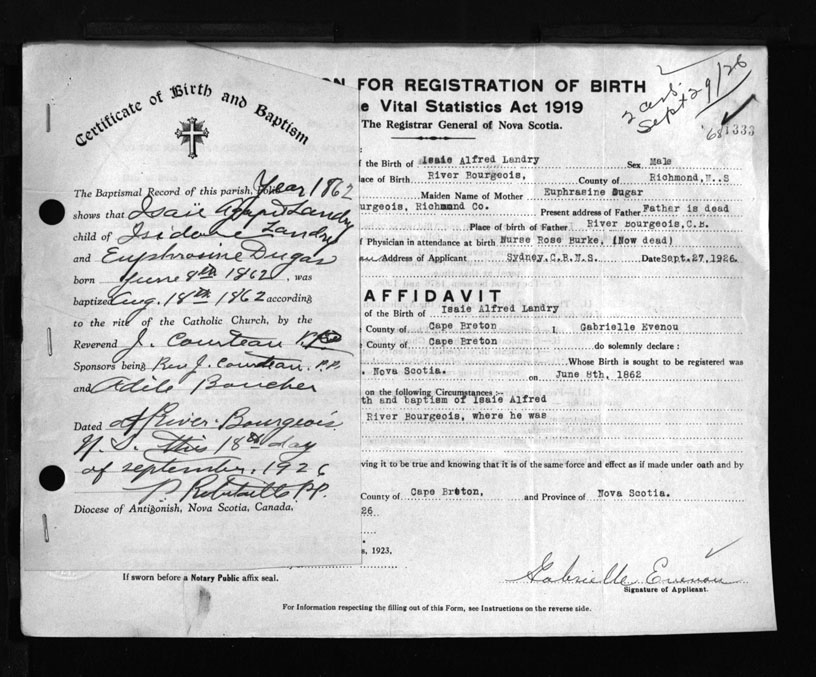 Certificate of Birth and Baptism
The Baptismal Record of this parish, Year 1862
shows that Isaie Landry
child of Isidore Landry
and Euphrosine Dugas
born June 8th 1862, was
baptized Aug. 18th 1862 according
to the rite of the Catholic Church, by the
Reverend J. Courteau P.P.
Sponsors being Rev J. Courteau. P.P.
and Adile Boucher
Dated at River Bourgeois
N.S. this 18th day
of September, 1926
P. P.P.
Diocese of Antigonish, Nova Scotia, Canada.
2 Sept 29/26
681333
ON FOR REGISTRATION OF BIRTH
e Vital Statistics Act 1919
The Registrar General of Nova Scotia.
f the Birth of Isaie Alfred Landry Sex Male
lace of Birth River Bourgeois, County of Richmond,N..S
Maiden Name of Mother Euphrasine Dugar
urgeois, Richmond Co. Present address of Father Father is dead
Place of birth of Father River Bourgeois,C.B.
f Physician in attendance at birth Nurse Rose Burke, (Now dead)
Address of Applicant Sydney.C.B.N.S. Date Sept.27,1926.
AFFIDAVIT
of the Birth of Isaie Alfred Landry
e County of Cape Breton I, Gabrielle Evenou
e County of Cape Breton do solemnly declare :
Whose Birth is sought to be registered was
. Nova Scotia. on June 8th, 1862
on the following Circumstances :-
th and baptism of Isaie Alfred
River Bourgeois, where he was
ving it to be true and knowing that it is of the same force and effect as if made under oath and by
County of Cape Breton, and Province of Nova Scotia.
26
s, 1923,
Gabrielle Evenou
If sworn before a Notary Public affix seal.
Signature of Applicant.
For Information respecting the filling out of this Form, see Instructions on the reverse side.